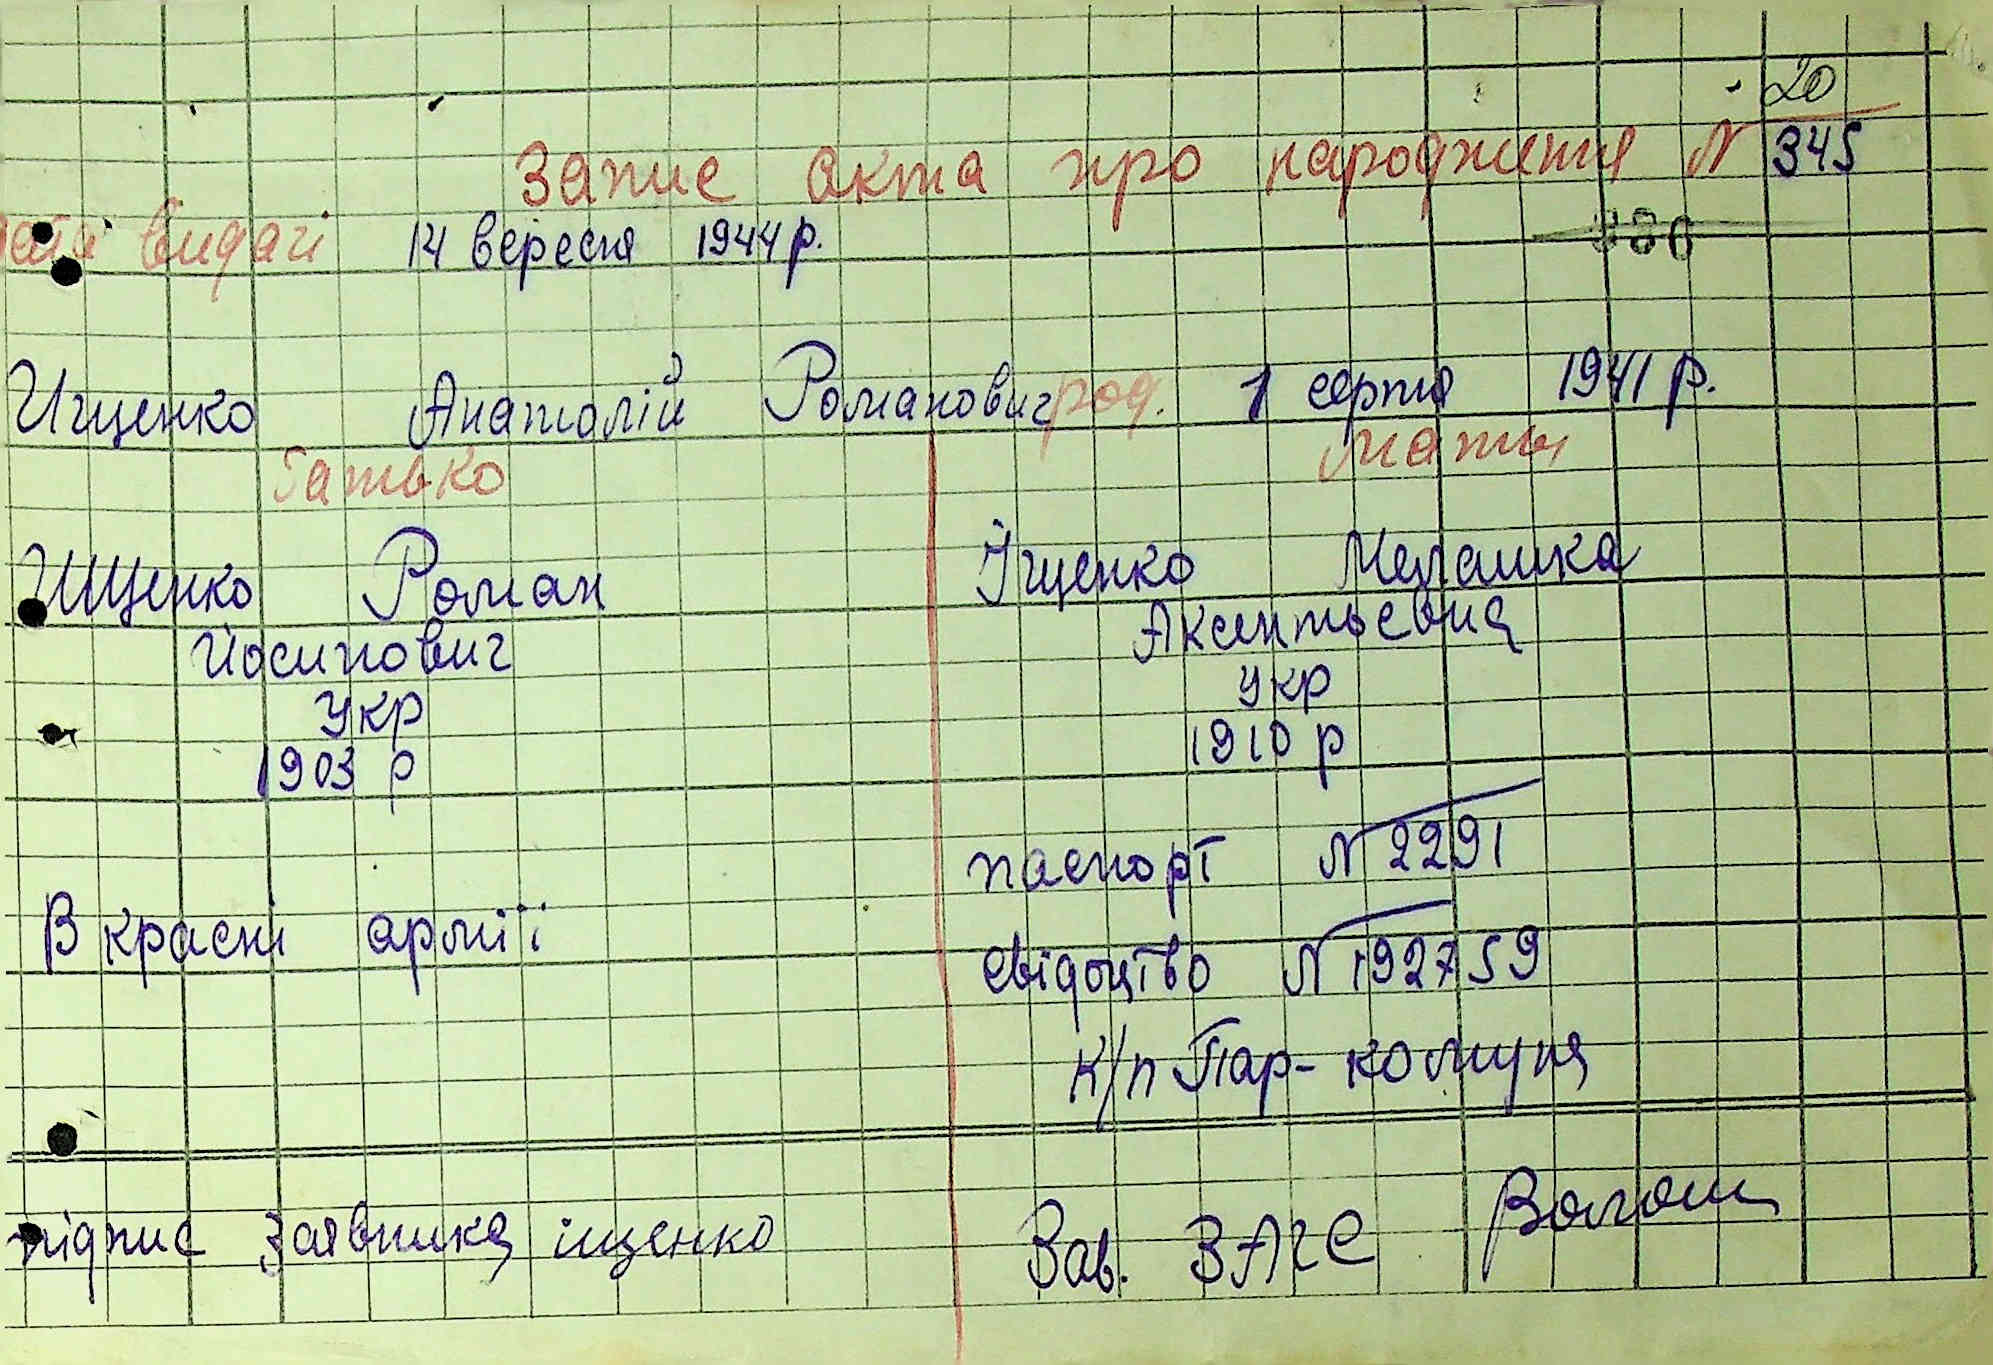 20
Запис акта про народження N 345
дата видачі 14 вересня 1944 р.
380
Ищенко Анатолій Романович род. 1 серпня 1941 р.
Батько Мати
ИЩенко Роман
Йосипович
Укр
1903 р
В красні армії
Іщенко Мелашка
Аксентьевна
Укр
1910 р
паспорт N 2291
свідоцтво N 192759
К/п Пар-комуна
підпис Заявника іщенко
Зав. ЗАГС Волош